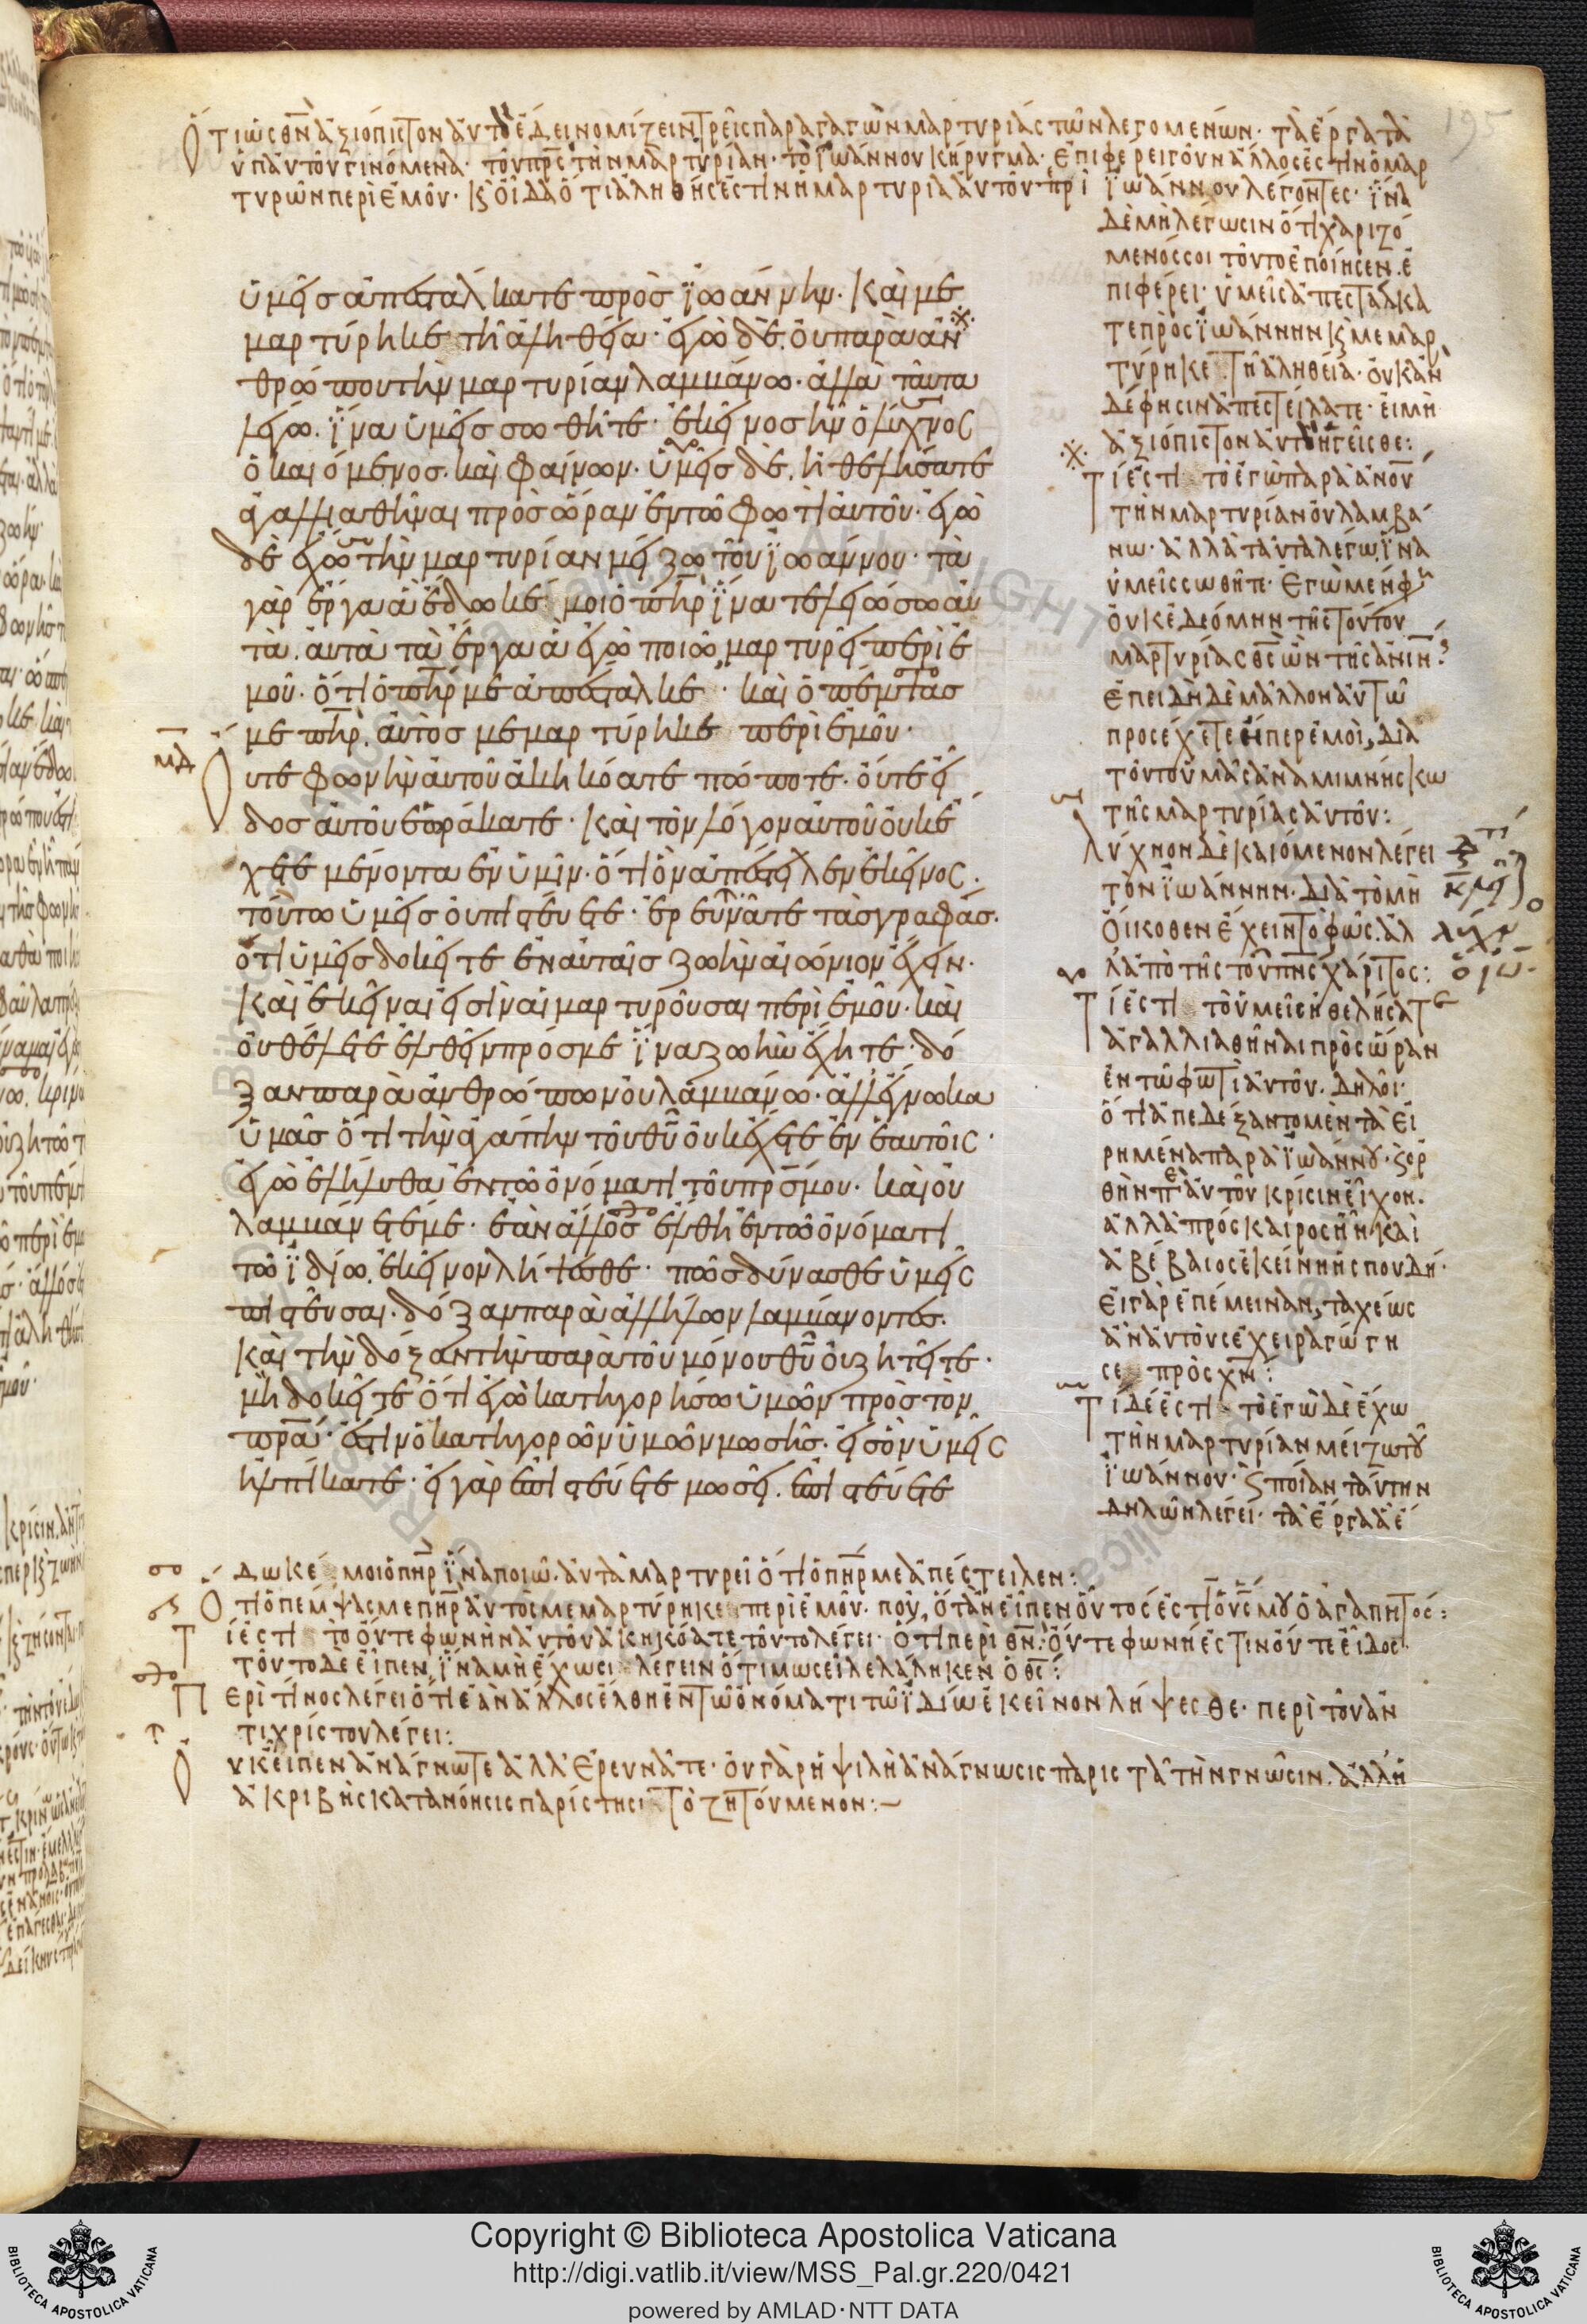 195
Ὅτι ὡς θν̅ ἀξιόπιστον αὐτὸ ἔδει νομίζειν τρεῖς παραγαγὼν μαρτυρίας τῶν λεγομένων· τὰ ἔργα τὰ
ὑπ αὐτοῦ γινόμενα· τοῦ πρ̅ς τὴν μαρτυρίαν· τὸ ἰωάννου κήρυγμα· ἐπιφέρει γοῦν ἄλλος ἐστιν ὁ μαρ
τυρῶν περὶ ἐμοῦ· κ οἶδα ὅτι ἀληθής ἐστιν ἡ μαρτυρία αὐτοῦ περὶ ἰωάννου λέγοντες· ἵνα
δὲ μὴ λέγωσιν ὅτι χαριζό
μενός σοι τοῦτο ἐποίησεν. ἐ
πιφέρει· ὑμεῖς ἀπεστάλκα
τε πρὸς ἰωάννην κ μεμαρ
τύρηκε τῆ ἀληθεία· οὐκ ἂν
δέ φησιν ἀπεστείλατε· εἰ μὴ
ἀξιόπιστον αὐτὸν ἡγεῖσθε:
Τί ἐστι τὸ ἐγὼ παρὰ ἀνου̅
τὴν μαρτυρίαν οὐ λαμβά
νω· ἀλλὰ ταῦτα λέγω, ἵνα
ὑμεῖς σωθῆτε· ἐγὼ μέν φ
οὐκ ἐδεόμην τῆς τούτου
μαρτυρίας θς̅ ὢν τῆς ἀνίν̅:
ἐπειδὴ δὲ μᾶλλον αὐτῶ
προσέχετε ἥπερ ἐμοὶ, διὰ
τοῦτο ὑμᾶς ἀναμιμνήσκω
τῆς μαρτυρίας αὐτοῦ:
Λύχνον δὲ καιόμενον λέγει
τὸν ἰωάννην· διὰ τὸ μὴ
οἴκοθεν ἔχειν τὸ φῶς. ἀλ
λ ἀπὸ τῆς τοῦ πνς̅ χάριτος:
Τί ἐστι τὸ ὑμεῖς ἠθελήσατε
ἀγαλλιαθῆναι πρὸς ὥραν
ἐν τῶ φωτὶ αὐτοῦ. δηλοῖ·
ὅτι ἀπεδέξαντο μὲν τὰ εἰ
ρημένα παρὰ ἰωάννου·
ἀλλὰ πρόσκαιρος ἦν· καὶ
ἀβέβαιος ἐκείνη ἡ σπουδή·
εἰ γὰρ ἐπέμειναν, ταχέως
ἂν αὐτοὺς ἐχειραγώγη
σε πρὸς χν̅:
Τί δέ ἐστι τὸ ἐγὼ δὲ ἔχω
τὴν μαρτυρίαν μείζω τοῦ
ἰωάννου· κ ποίαν ταύτην
δηλῶν λέγει· τὰ ἔργα ἃ ἔ
ὑμεῖς ἀπεστάλκατε πρὸς ἰωάννην. καὶ με
μαρτύρηκε τῆ ἀληθεία· ἐγὼ δὲ, οὐ παρὰ ἀν
θρώπου τὴν μαρτυρίαν λαμβάνω. ἀλλὰ ταῦτα
λέγω. ἵνα ὑμεῖς σωθῆτε· ἐκεῖνος ἦν ὁ λύχνος
ὁ καιόμενος. καὶ φαίνων. ὑμεῖς δὲ, ἠθελήσατε
ἀγαλλιαθῆναι πρὸς ὥραν ἐν τῶ φωτὶ αὐτοῦ. ἐγὼ
δὲ ἔχω τὴν μαρτυρίαν μείζω τοῦ ἰωάννου· τὰ
γὰρ ἔργα ἃ ἔδωκέ μοι ὁ πη̅ρ ἵνα τελειώσω αὐ
τὰ. αὐτὰ τὰ ἔργα ἃ ἐγὼ ποιῶ, μαρτυρεῖ περὶ ἐ
μοῦ· ὅτι ὁ πη̅ρ με ἀπέσταλκε· καὶ ὁ πέμψας
με πη̅ρ, αὐτὸς μεμαρτύρηκε περὶ ἐμοῦ·
μδ Οὔτε φωνὴν αὐτοῦ ἀκηκόατε πώποτε. οὔτε εἶ
δος αὐτοῦ ἑωράκατε· καὶ τὸν λόγον αὐτοῦ οὐκ ἔ
χετε μένοντα ἐν ὑμῖν. ὅτι ὃν ἀπέστειλεν ἐκεῖνος.
τούτω ὑμεῖς οὐ πιστεύετε· ἐρευνᾶτε τὰς γραφάς.
ὅτι ὑμεῖς δοκεῖτε ἐν αὐταῖς ζωὴν αἰώνιον ἔχειν.
καὶ ἐκεῖναι εἰσὶν αἱ μαρτυροῦσαι περὶ ἐμοῦ. καὶ
οὐ θέλετε ἐλθεῖν πρός με ἵνα ζωὴν ἔχητε· δό
ξαν παρὰ ἀνθρώπων οὐ λαμβάνω· ἀλλ ἔγνωκα
ὑμᾶς ὅτι τὴν ἀγάπην τοῦ θυ̅ οὐκ ἔχετε ἐν ἑαυτοῖς·
ἐγὼ ἐλήλυθα ἐν τῶ ὀνόματι τοῦ πρ̅ς μου. καὶ οὐ
λαμβάνετέ με· ἐὰν ἄλλος ἔλθη ἐν τῶ ὀνόματι
τῶ ἰδίω, ἐκεῖνον λήψεσθε· πῶς δύνασθε ὑμεῖς
πιστεῦσαι. δόξαν παρὰ ἀλλήλων λαμβάνοντες.
καὶ τὴν δόξαν τὴν παρὰ τοῦ μόνου θυ̅ οὐ ζητεῖτε·
μὴ δοκεῖτε ὅτι ἐγὼ κατηγορήσω ὑμῶν πρὸς τὸν
πρ̅α· ἔστιν ὁ κατηγορῶν ὑμῶν μωσῆς. εἰς ὃν ὑμεῖς
ἠλπίκατε· εἰ γὰρ ἐπιστεύετε μωσεῖ. ἐπιστεύετε
δωκέ μοι ὁ πη̅ρ ἵνα ποιῶ. αὐτὰ μαρτυρεῖ ὅτι ὁ πη̅ρ με ἀπέστειλεν:
Ὅτι ὁ πέμψας με πη̅ρ αὐτὸς μεμαρτύρηκε περὶ ἐμοῦ. ποῦ, ὅταν εἶπεν οὗτός ἐστιν ὁ υς̅ μου ὁ ἀγαπητός:
Τί ἐστι τὸ οὔτε φωνὴν αὐτοῦ ἀκηκόατε τοῦτο λέγει· ὅτι περὶ θν̅. οὔτε φωνή ἐστιν οὔτε εἶδος.
τοῦτο δὲ εἶπεν, ἵνα μὴ ἔχωσι λέγειν ὅτι μωσεῖ λελάληκεν ὁ θς̅:
Περὶ τίνος λέγει ὅτι ἐὰν ἄλλος ἔλθη ἐν τῶ ὀνόματι τῶ ἰδίω ἐκεῖνον λήψεσθε· περὶ τοῦ ἀν
τιχρίστου λέγει:
Οὐκ εἶπεν ἀνάγνωτε ἀλλ ἐρευνᾶτε· οὐ γὰρ ἡ ψιλὴ ἀνάγνωσις παριστᾶ τὴν γνῶσιν. ἀλλ ἡ
ἀκριβὴς κατανόησις παρίστησι τὸ ζητούμενον:–
Copyright © Biblioteca Apostolica Vaticana
http://digi.vatlib.it/view/MSS_Pal.gr.220/0421
powered by AMLAD·NTT DATA
BIBLIOTECA APOSTOLICA VATICANA
BIBLIOTECA APOSTOLICA VATICANA